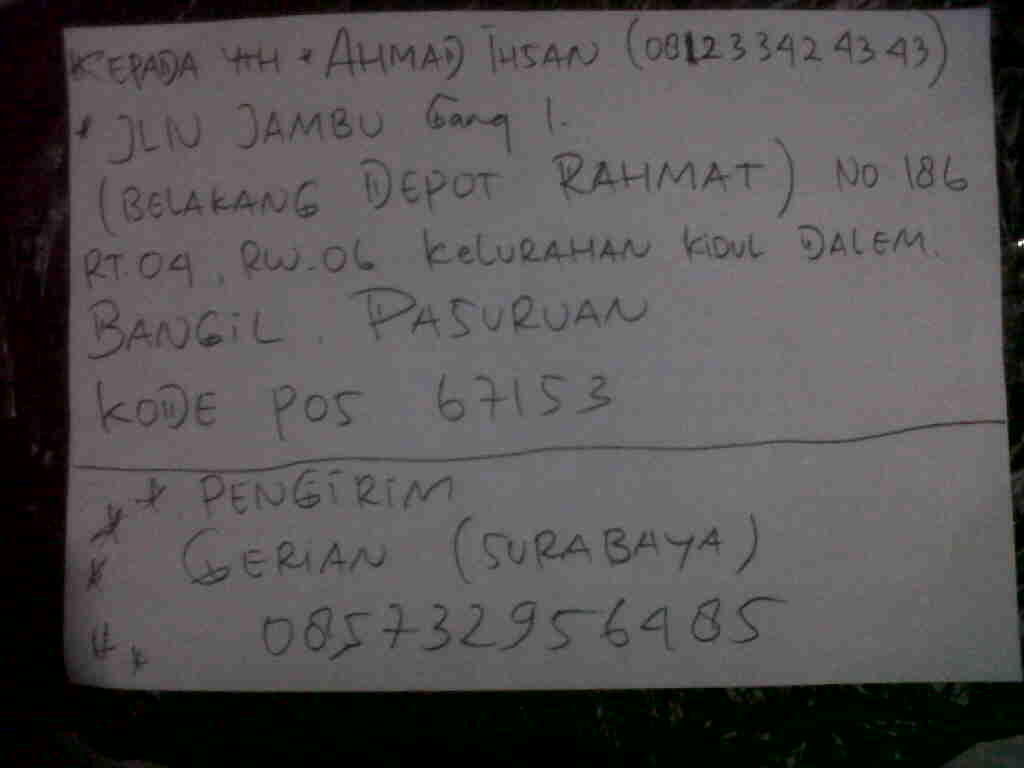 KEPADA YTH * AHMAD IHSAN (081233424343)
* JLN JAMBU Gang 1.
(BELAKANG DEPOT RAHMAT) NO 186
RT.04, RW.06 KELURAHAN KIDUL DALEM.
BANGIL. PASURUAN
KODE POS 67153
* PENGIRIM
GERIAN (SURABAYA)
085732956485